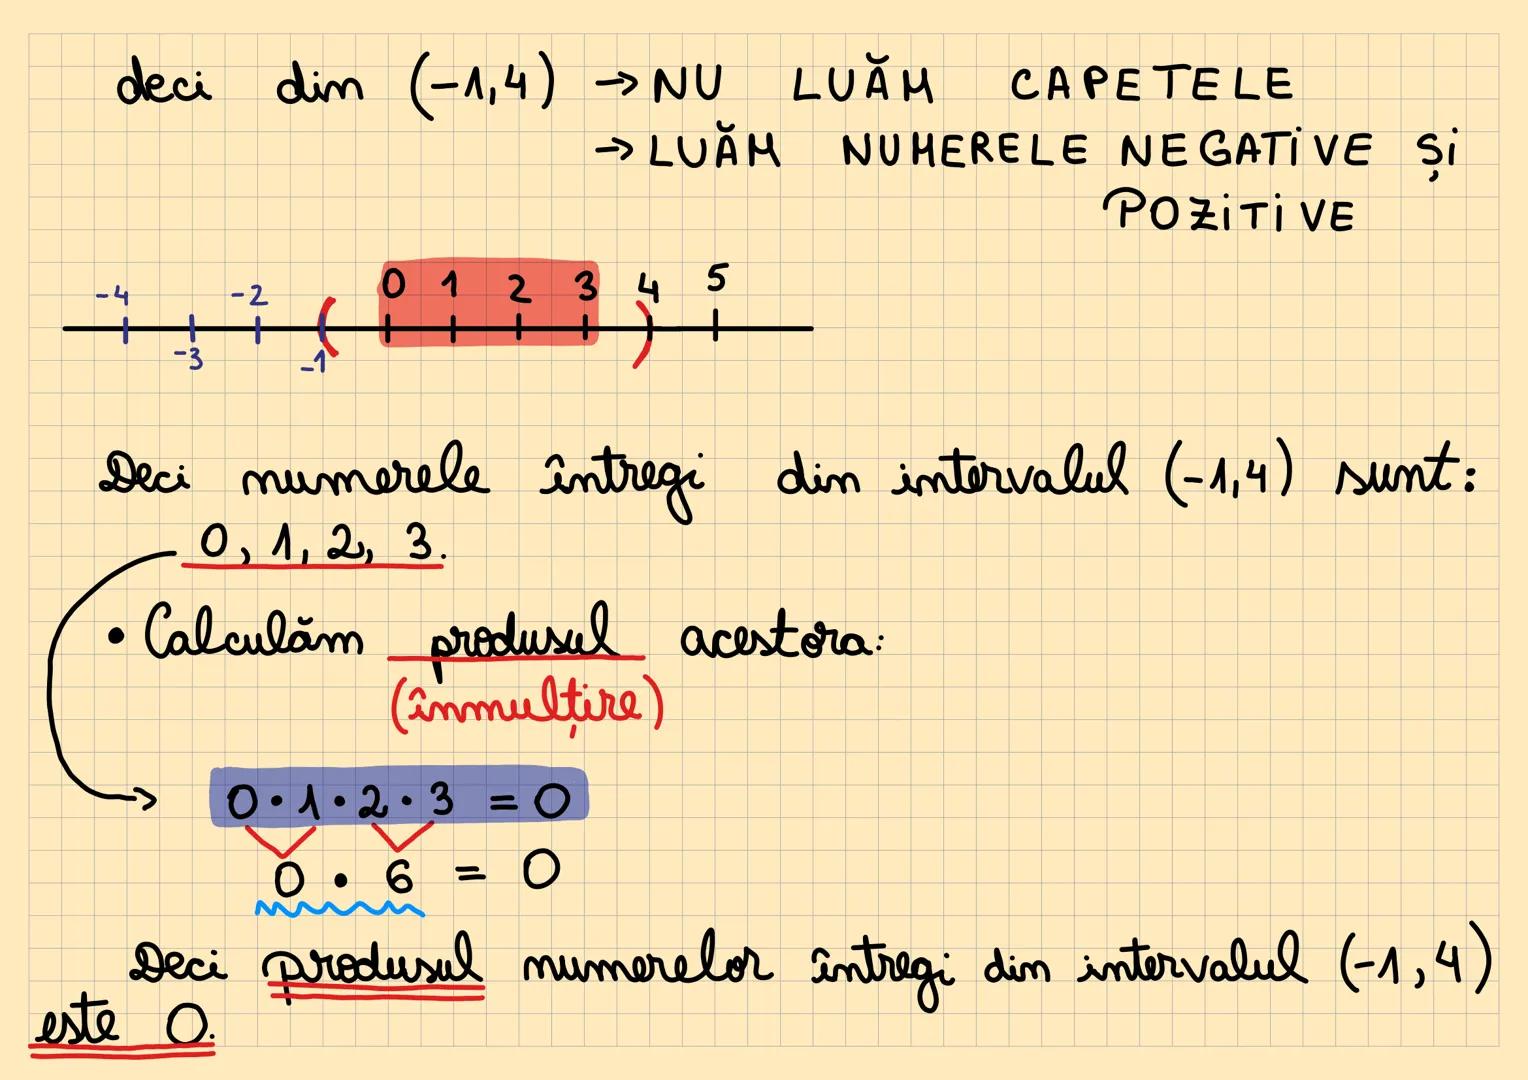 deci din (-1,4) → NU LUĂM CAPETELE
→ LUĂM NUMERELE NEGATiVE Şi
POZiTiVE
-4 -3 -2 -1 0 1 2 3 4 5
Deci numerele întregi din intervalul (-1,4) sunt:
0, 1, 2, 3.
• Calculăm produsul acestora:
(înmulțire)
0 · 1 · 2 · 3 = 0
0 · 6 = 0
Deci produsul numerelor întregi din intervalul (-1,4)
este 0.